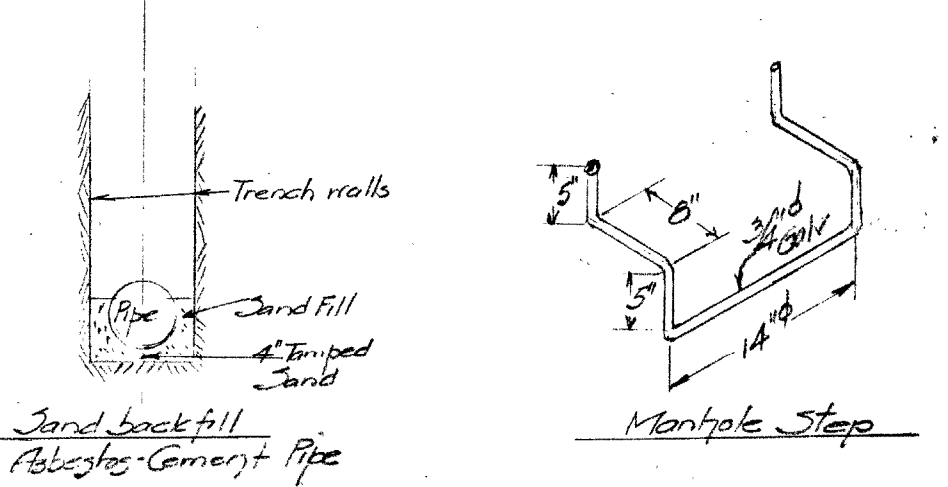 Trench walls
Pipe
Sand Fill
4" Tamped
Sand
Sand backfill
Asbestos-Cement Pipe
5"
8"
3/4"ϕ
Galv
5"
14"ϕ
Manhole Step